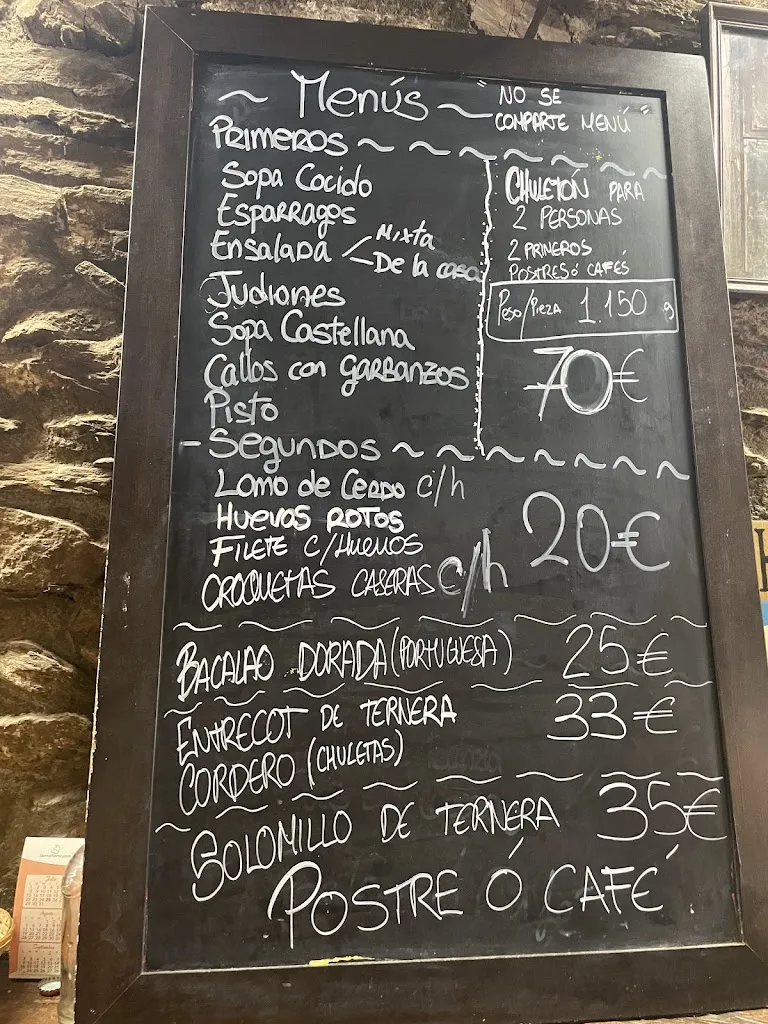 ~ Menús ~
"NO SE
COMPARTE MENÚ"
PRIMEROS
Sopa Cocido
Esparragos
Ensalada Mixta
De la casa
Judiones
Sopa Castellana
Callos con GARBANZOS
Pisto
CHULETÓN PARA
2 PERSONAS
2 PRIMEROS
POSTRES Ó CAFÉS
Peso/Pieza 1.150 g
70€
- SEGUNDOS
Lomo de Cerdo c/h
HUEVOS ROTOS
FILETE C/HUEVOS
CROQUETAS CASERAS c/h
20€
BACALAO DORADA (PORTUGUESA) 25€
ENTRECOT DE TERNERA 33€
CORDERO (CHULETAS)
SOLOMILLO DE TERNERA 35€
POSTRE Ó CAFÉ